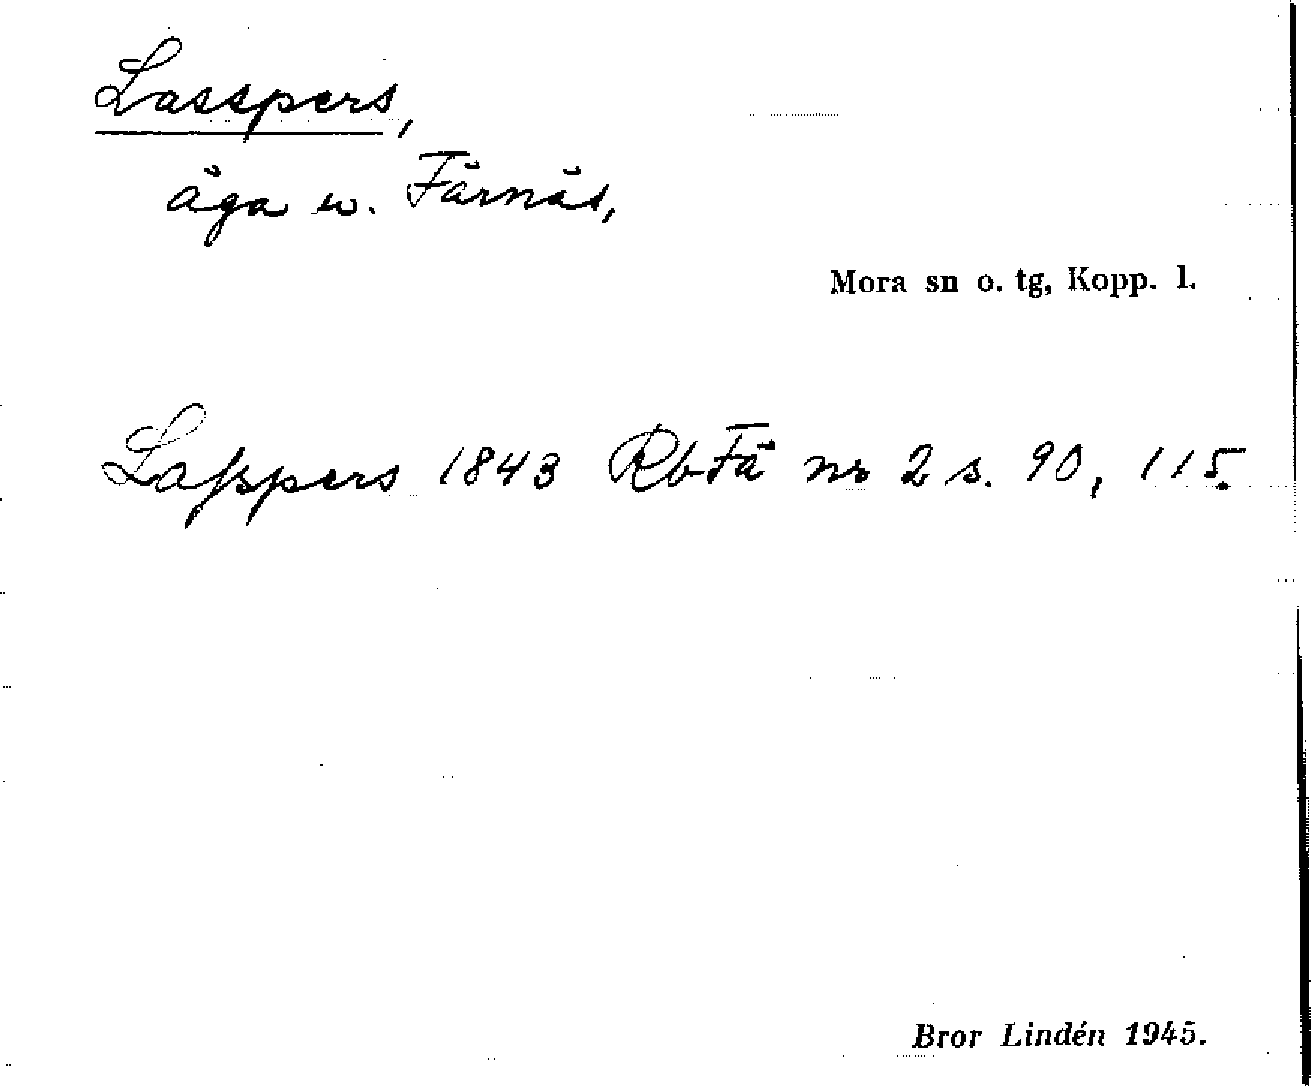 Lasspers,
äga w. Färnäs,
Mora sn o. tg, Kopp. l.
Laſspers 1843 Rb Fä nr 2 s. 90, 115.
Bror Lindén 1945.